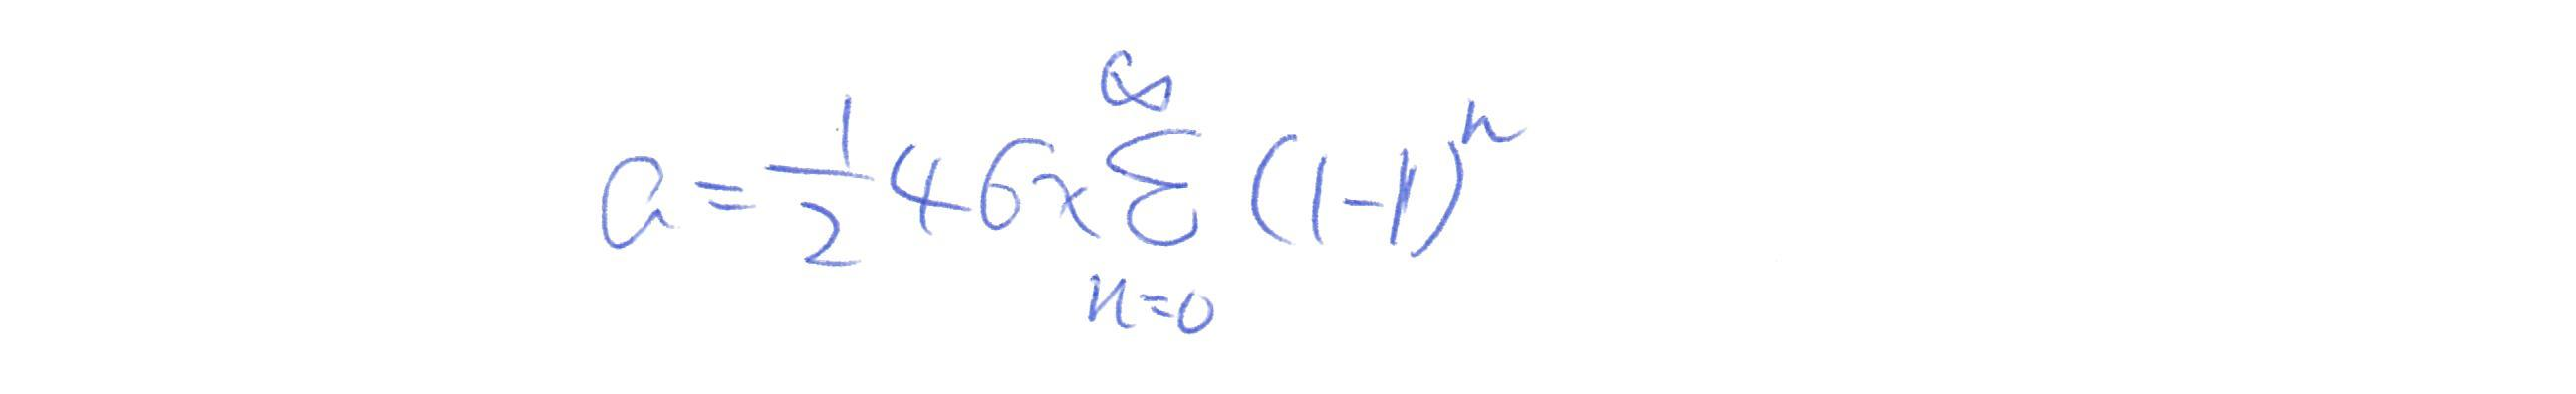 a = \frac{1}{2} 46x \sum_{n=0}^{\infty} (1-1)^n